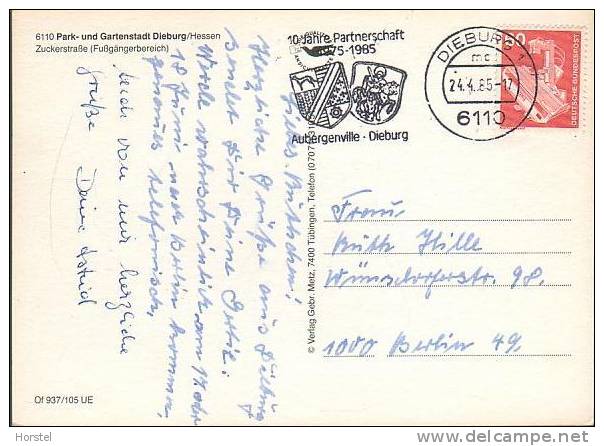 6110 Park- und Gartenstadt Dieburg/Hessen
Zuckerstraße (Fußgängerbereich)
10 Jahre Partnerschaft
1975-1985
Aubergenville · Dieburg
DIEBURG 1
mc
24.4.85-17
6110
DEUTSCHE BUNDESPOST
Liebes Ruthchen!
Herzliche Grüße aus Dieburg
Dir Deine
Woche wahrscheinlich am 17. oder
18. Juni nach Berlin komme,
genaues telefonisch,
Auch von mir herzliche
Grüße Deine Astrid
© Verlag Gebr. Metz, 7400 Tübingen, Telefon (07071)
Frau
Ruth Hille
Wünsdorferstr. 98.
1000 Berlin 49.
Of 937/105 UE
Horstel
www.delcampe.net